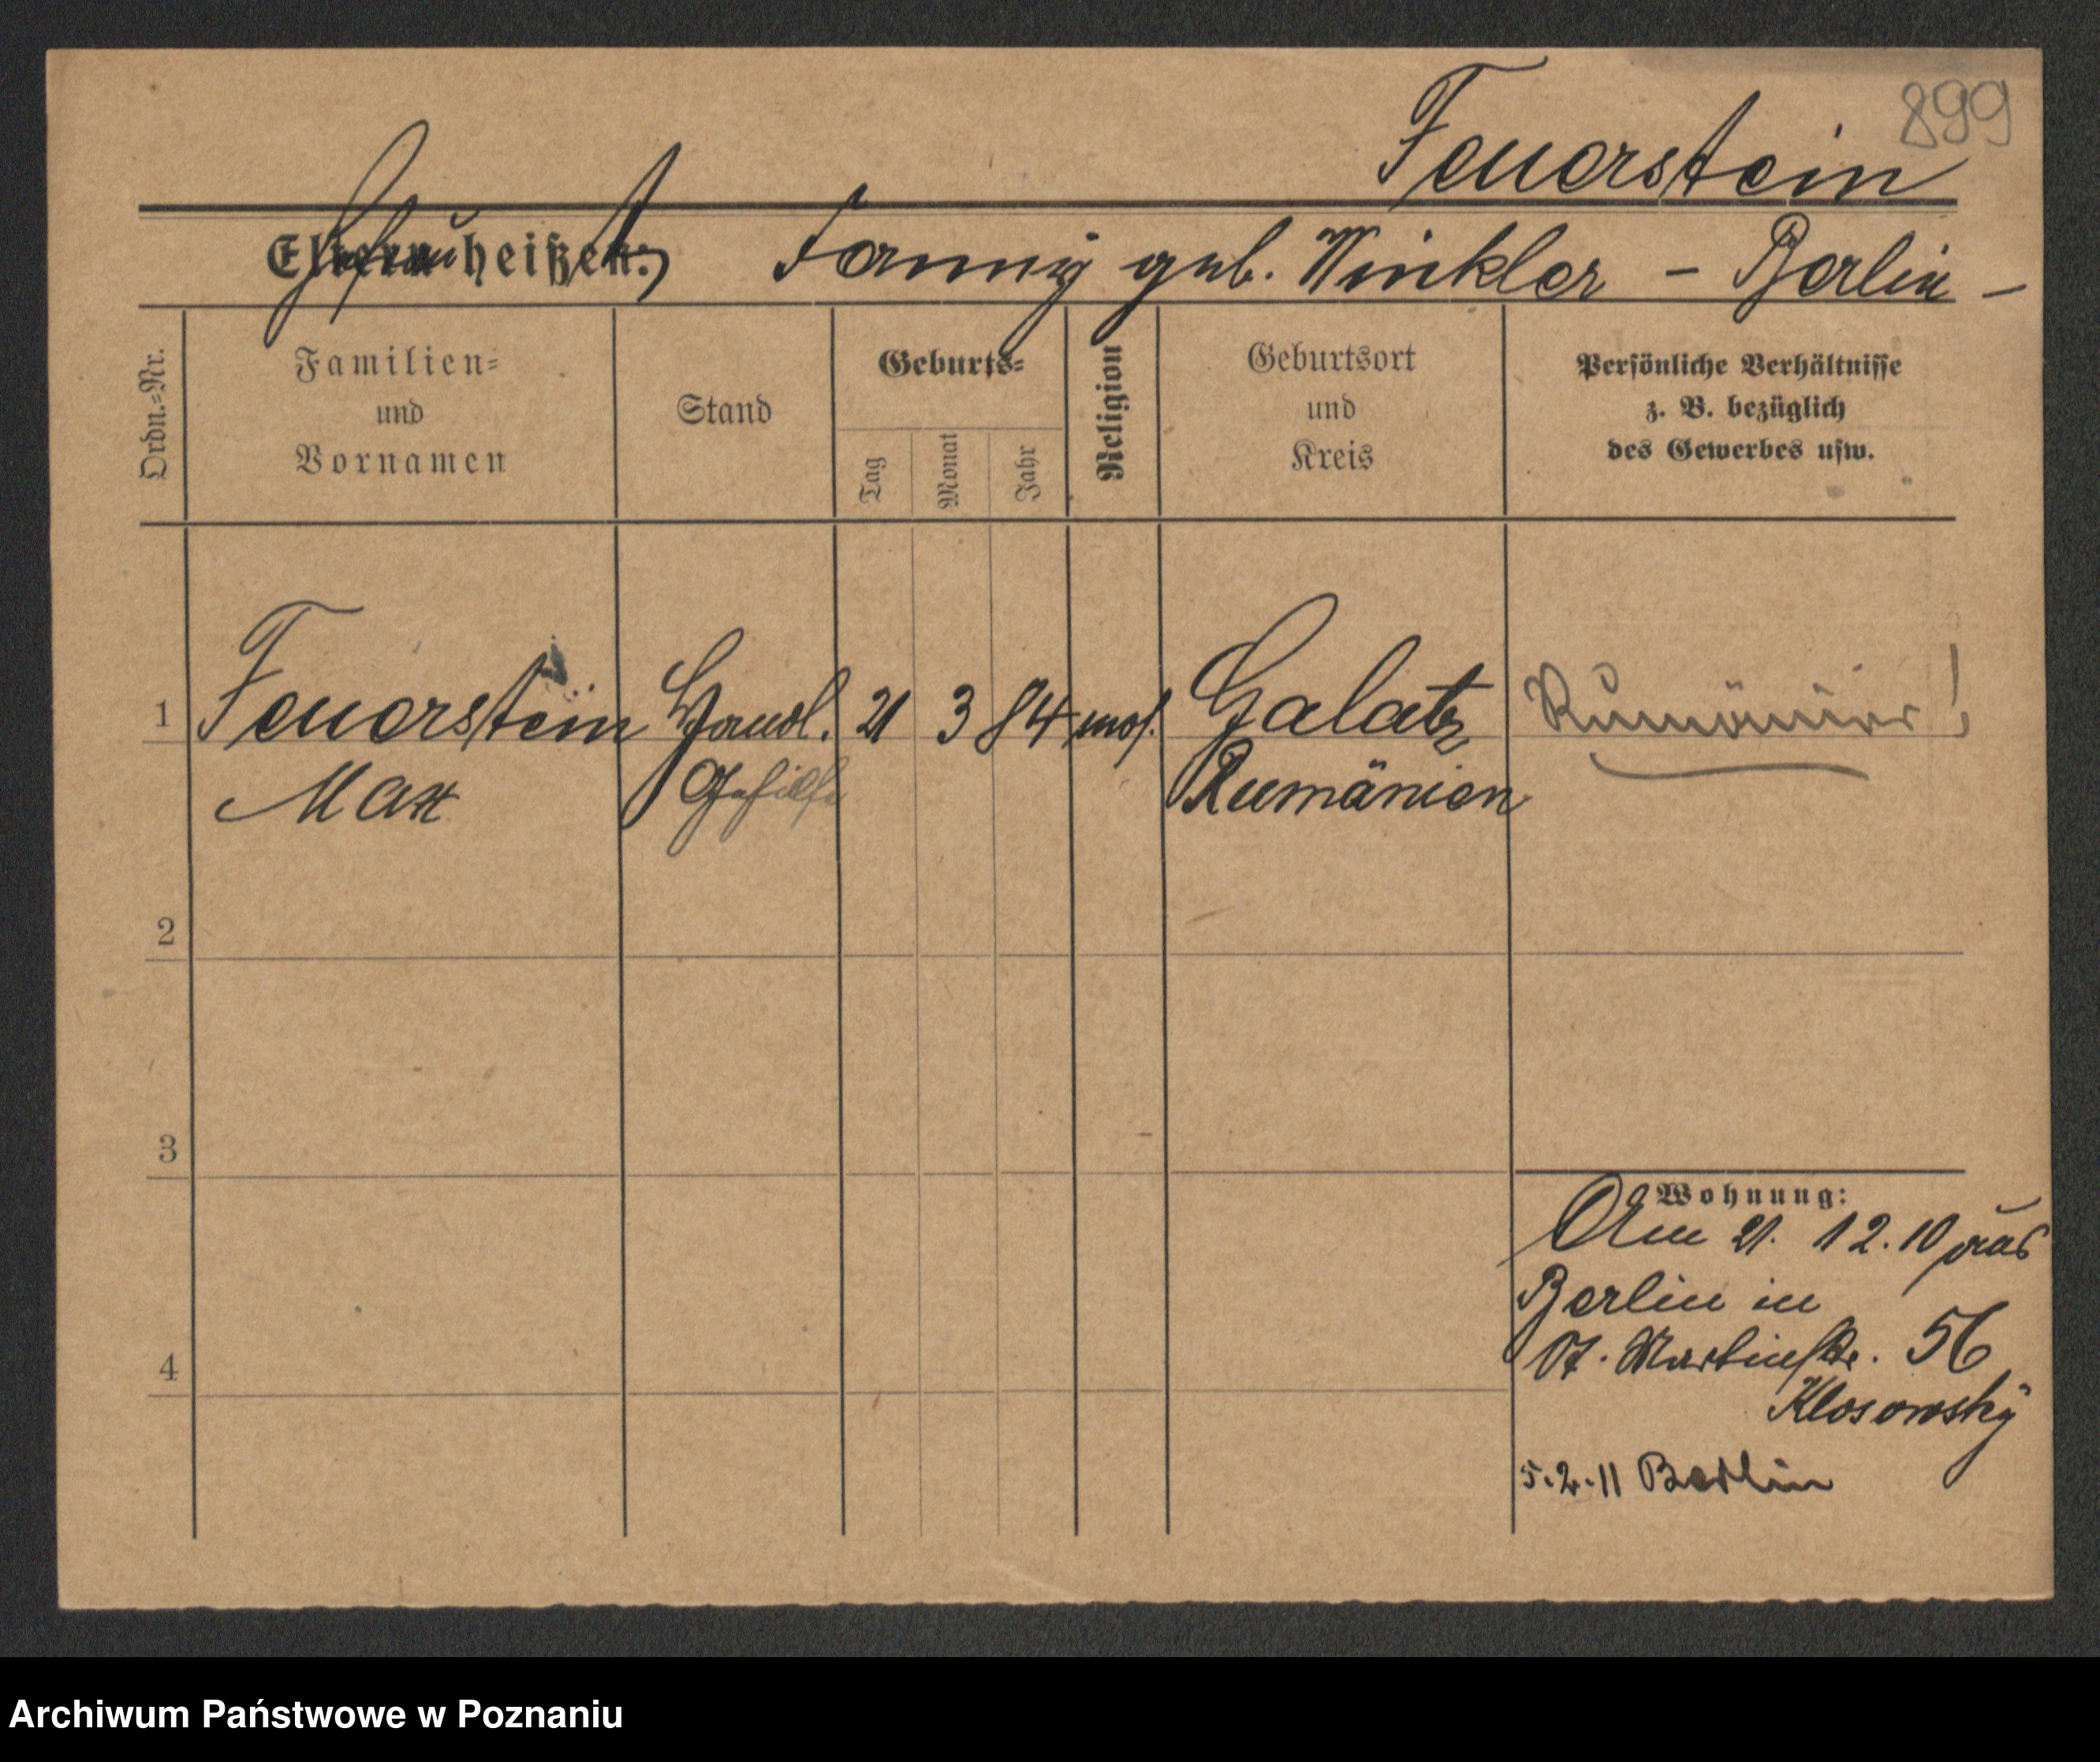 899
Feuerstein
Eltern heißen:
Ehefrau Fanny geb. Winkler – Berlin –
Ordn.=Nr.
Familien=
und
Vornamen
Stand
Geburts=
Tag
Monat
Jahr
Religion
Geburtsort
und
Kreis
Persönliche Verhältnisse
z. B. bezüglich
des Gewerbes usw.
1 Feuerstein Handl. 21 3 84 mos. Galatz Rumänier!
Max Gehilfe Rumänien
2
3
4
Wohnung:
Am 21. 12. 10 aus
Berlin in
St. Martinstr. 56
Klosowsky
5.2.11 Berlin
Archiwum Państwowe w Poznaniu